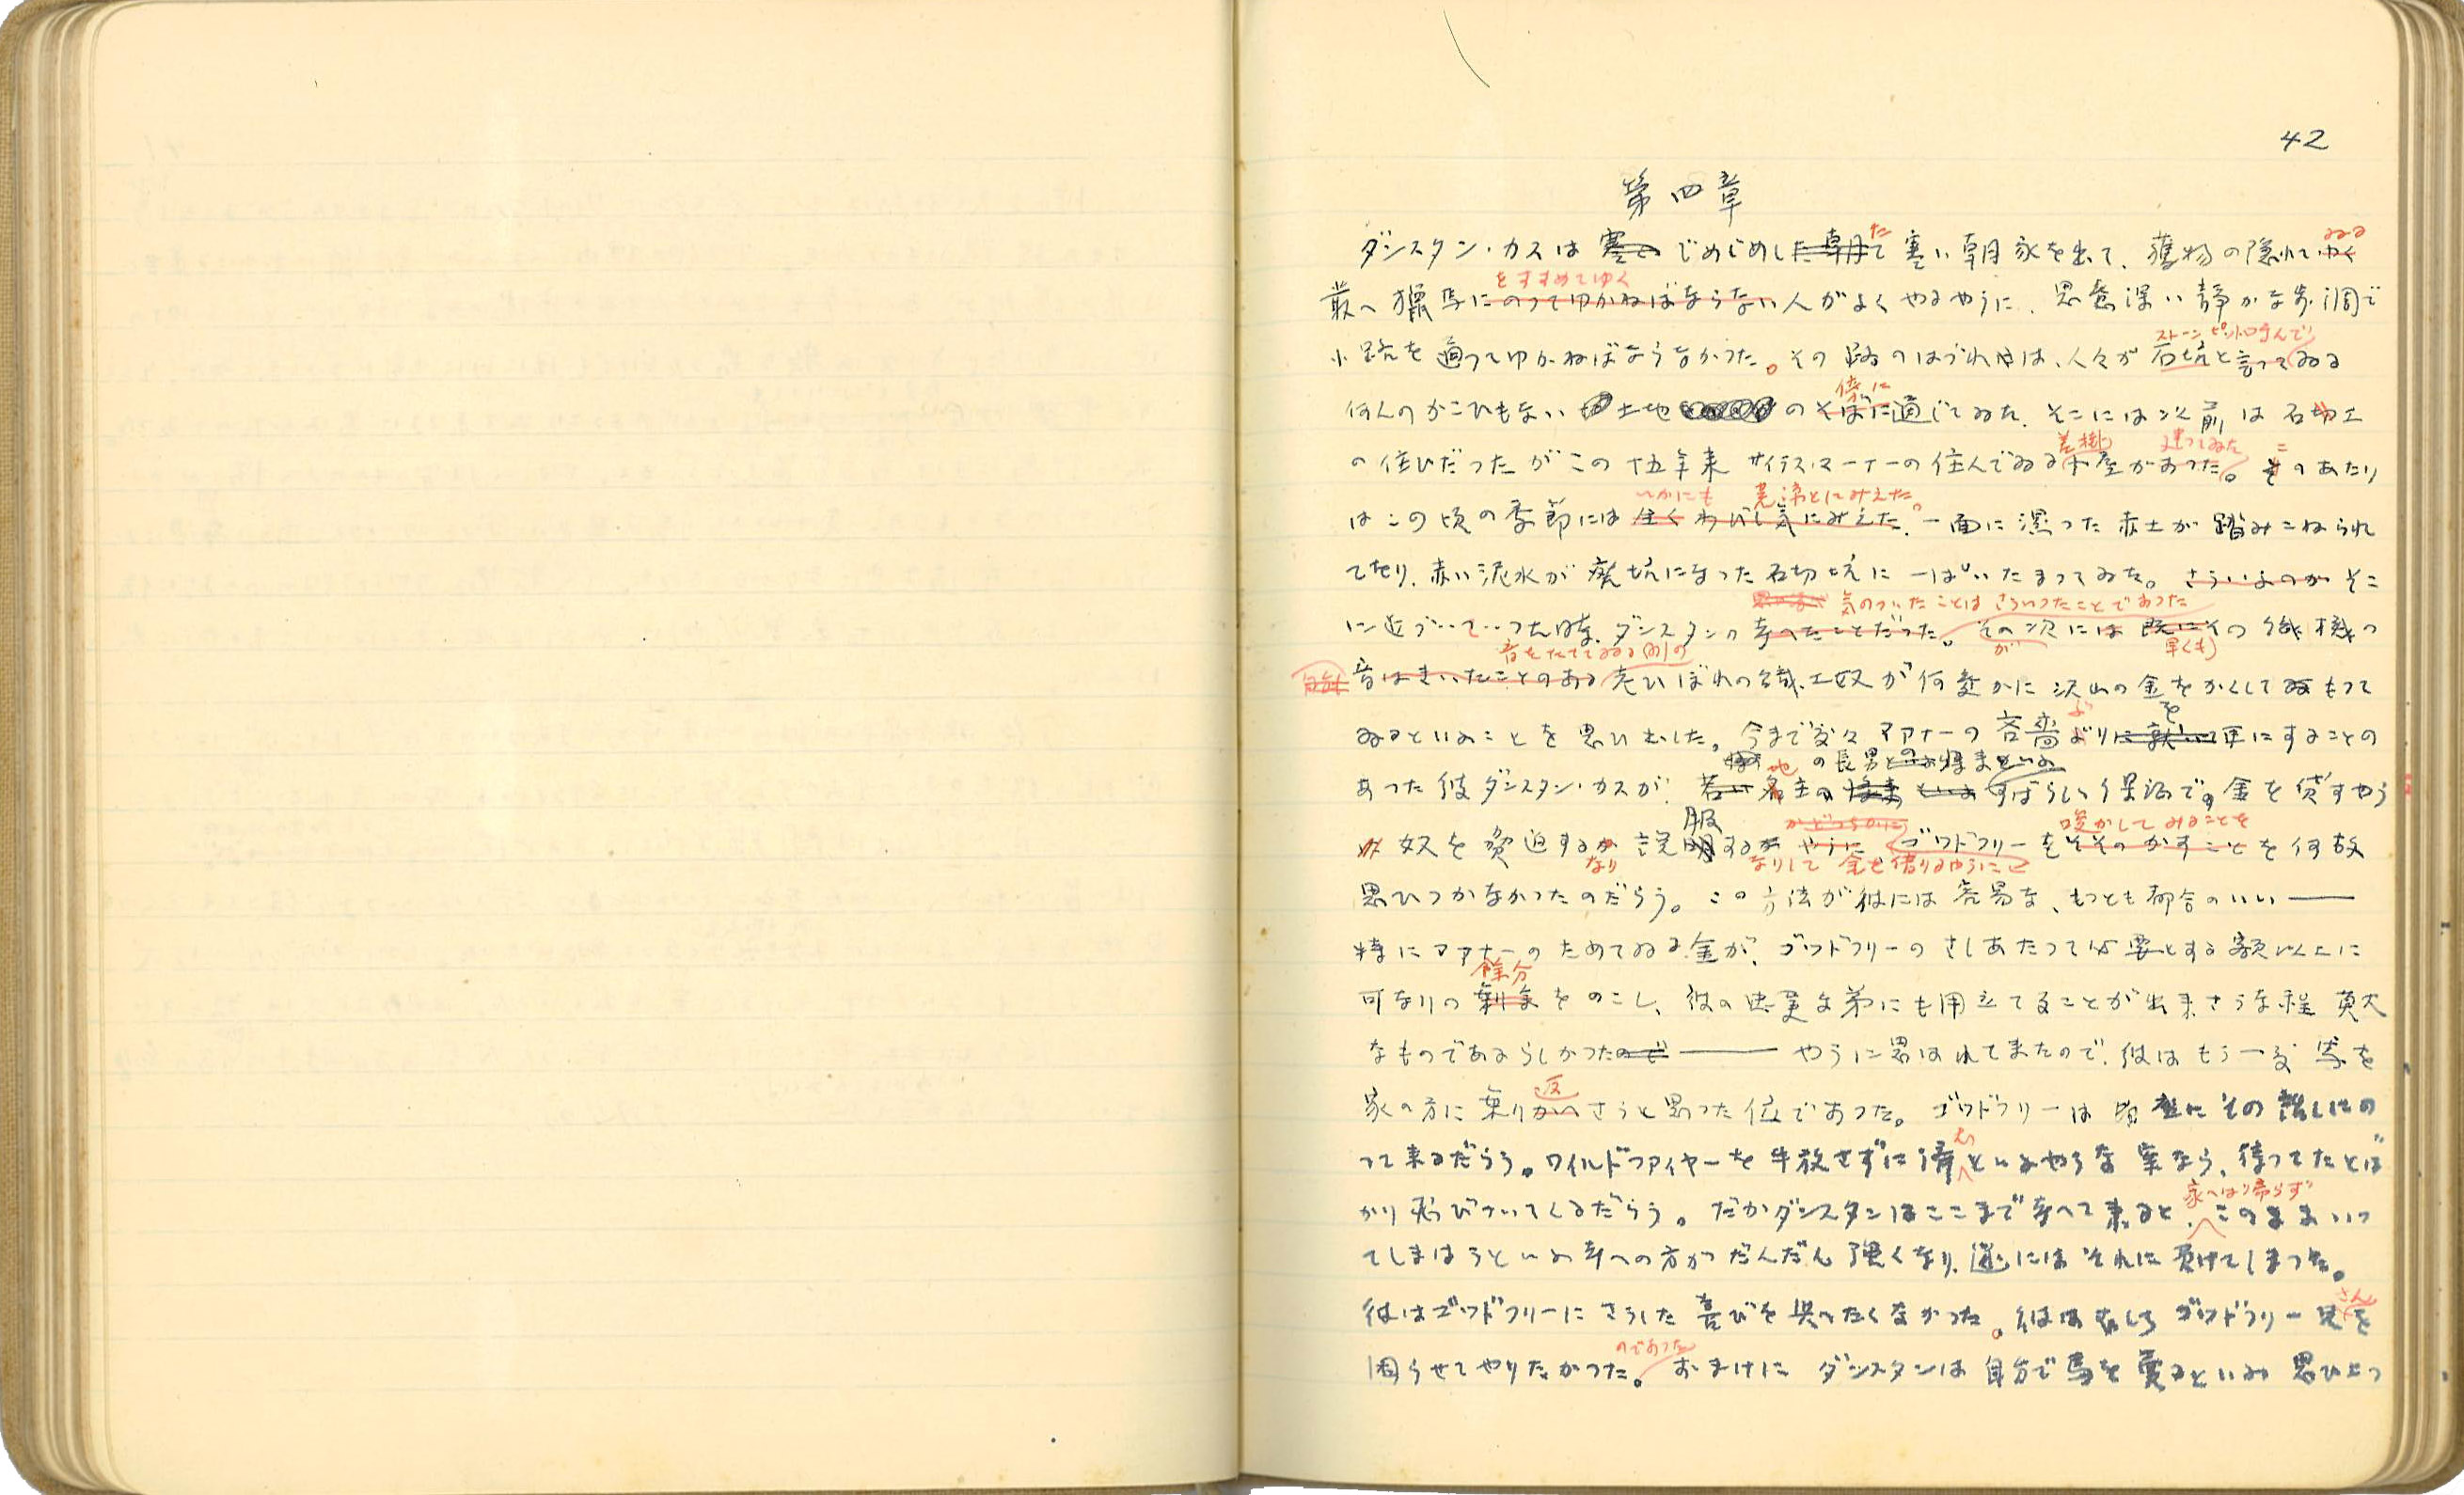 42
第四章
ダンスタン・カスは 寒い じめじめした朝て た 寒い朝家を出て、獲物の隠れてゆく ゐる
叢へ猟馬にのつてゆかねばならない をすすめてゆく 人がよくやるやうに、思慮深い静かな歩調で
小路を通つてゆかねばならなかつた。その路のはづれは、人々が石坑と言つて ストーンピットと呼んで ゐる
何んのかこひもない 土地 のそばに 傍に 通じてゐた。そこには以前は石切工
の住ひだつたがこの十五年来サイラス・マーナーの住んでゐる 差掛 小屋があつた 建つてゐた。そ こ のあたり
はこの頃の季節には全く いかにも わびし気にみえた 荒涼とにみえた。一面に濕つた赤土が踏みこねられ
てをり、赤い泥水が廃坑になつた石切坑に一ぱいたまつてゐた。さういふのが そこ
に近づいていつた時、ダンスタンの考へたことだつた 気のついたことはさういつたことであつた。その次には が 既に 早くも その織機の
音はきいたことのある 音をたててゐる例の 老ひぼれの織工奴が何処かに沢山の金をかくしてもつて
ゐるといふことを思ひ出した。今まで度々マアナーの吝嗇ぶりに就いて を 耳にすることの
あつた彼ダンスタン・カスが、若い 地 名主の の長男 将来といふ すばらしい保證で、金を貸すやう
奴を脅迫するか なり 説明 服 するか なりして 金を借りるやうに ゴツドフリーをそそのかすこと 唆かしてみることを を何故
思ひつかなかつたのだらう。この方法が彼には容易な、もつとも都合のいい――
特にマアナーのためてゐる金が、ゴツドフリーのさしあたつて必要とする額以上に
可なりの剰余 餘分 をのこし、彼の忠実な弟にも用立てることが出来さうな程莫大
なものであるらしかつたので――やうに思はれてきたので、彼はもう一度馬を
家の方に乗りかへ 返 さうと思つた位であつた。ゴツドフリーは直にその話しにの
つて来るだらう。ワイルドファイヤーを手放さずに済 む といふやうな案なら、待つてたとば
かり飛びついてくるだらう。だがダンスタンはここまで考へて来ると、家へは帰らず このままいつ
てしまはうといふ考への方がだんだん強くなり、遂にはそれに負けてしまつた。
彼はゴツドフリーにさうした喜びを与へたくなかつた。彼はむしろゴツドフリー兄 さん を
困らせてやりたかつた のであつた。おまけにダンスタンは自分で馬を売るといふ思ひ上つ